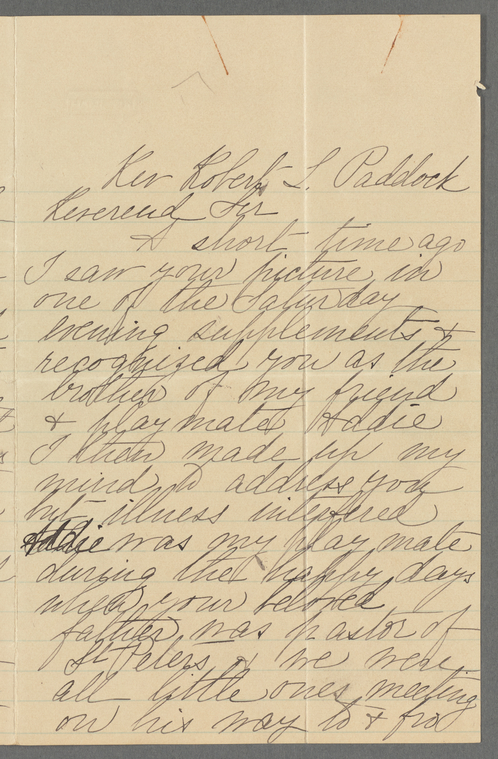 Rev Robert L. Paddock
Reverend Sir
A short time ago
I saw your picture in
one of the Saturday
evening supplements &
recognized you as the
brother of my friend
& playmate Addie
I then made up my
mind to address you
but illness intefered
Addie was my play mate
during the happy days
when your beloved
father was pastor of
St Peters & we were
all little ones meeting
on his way to & fro